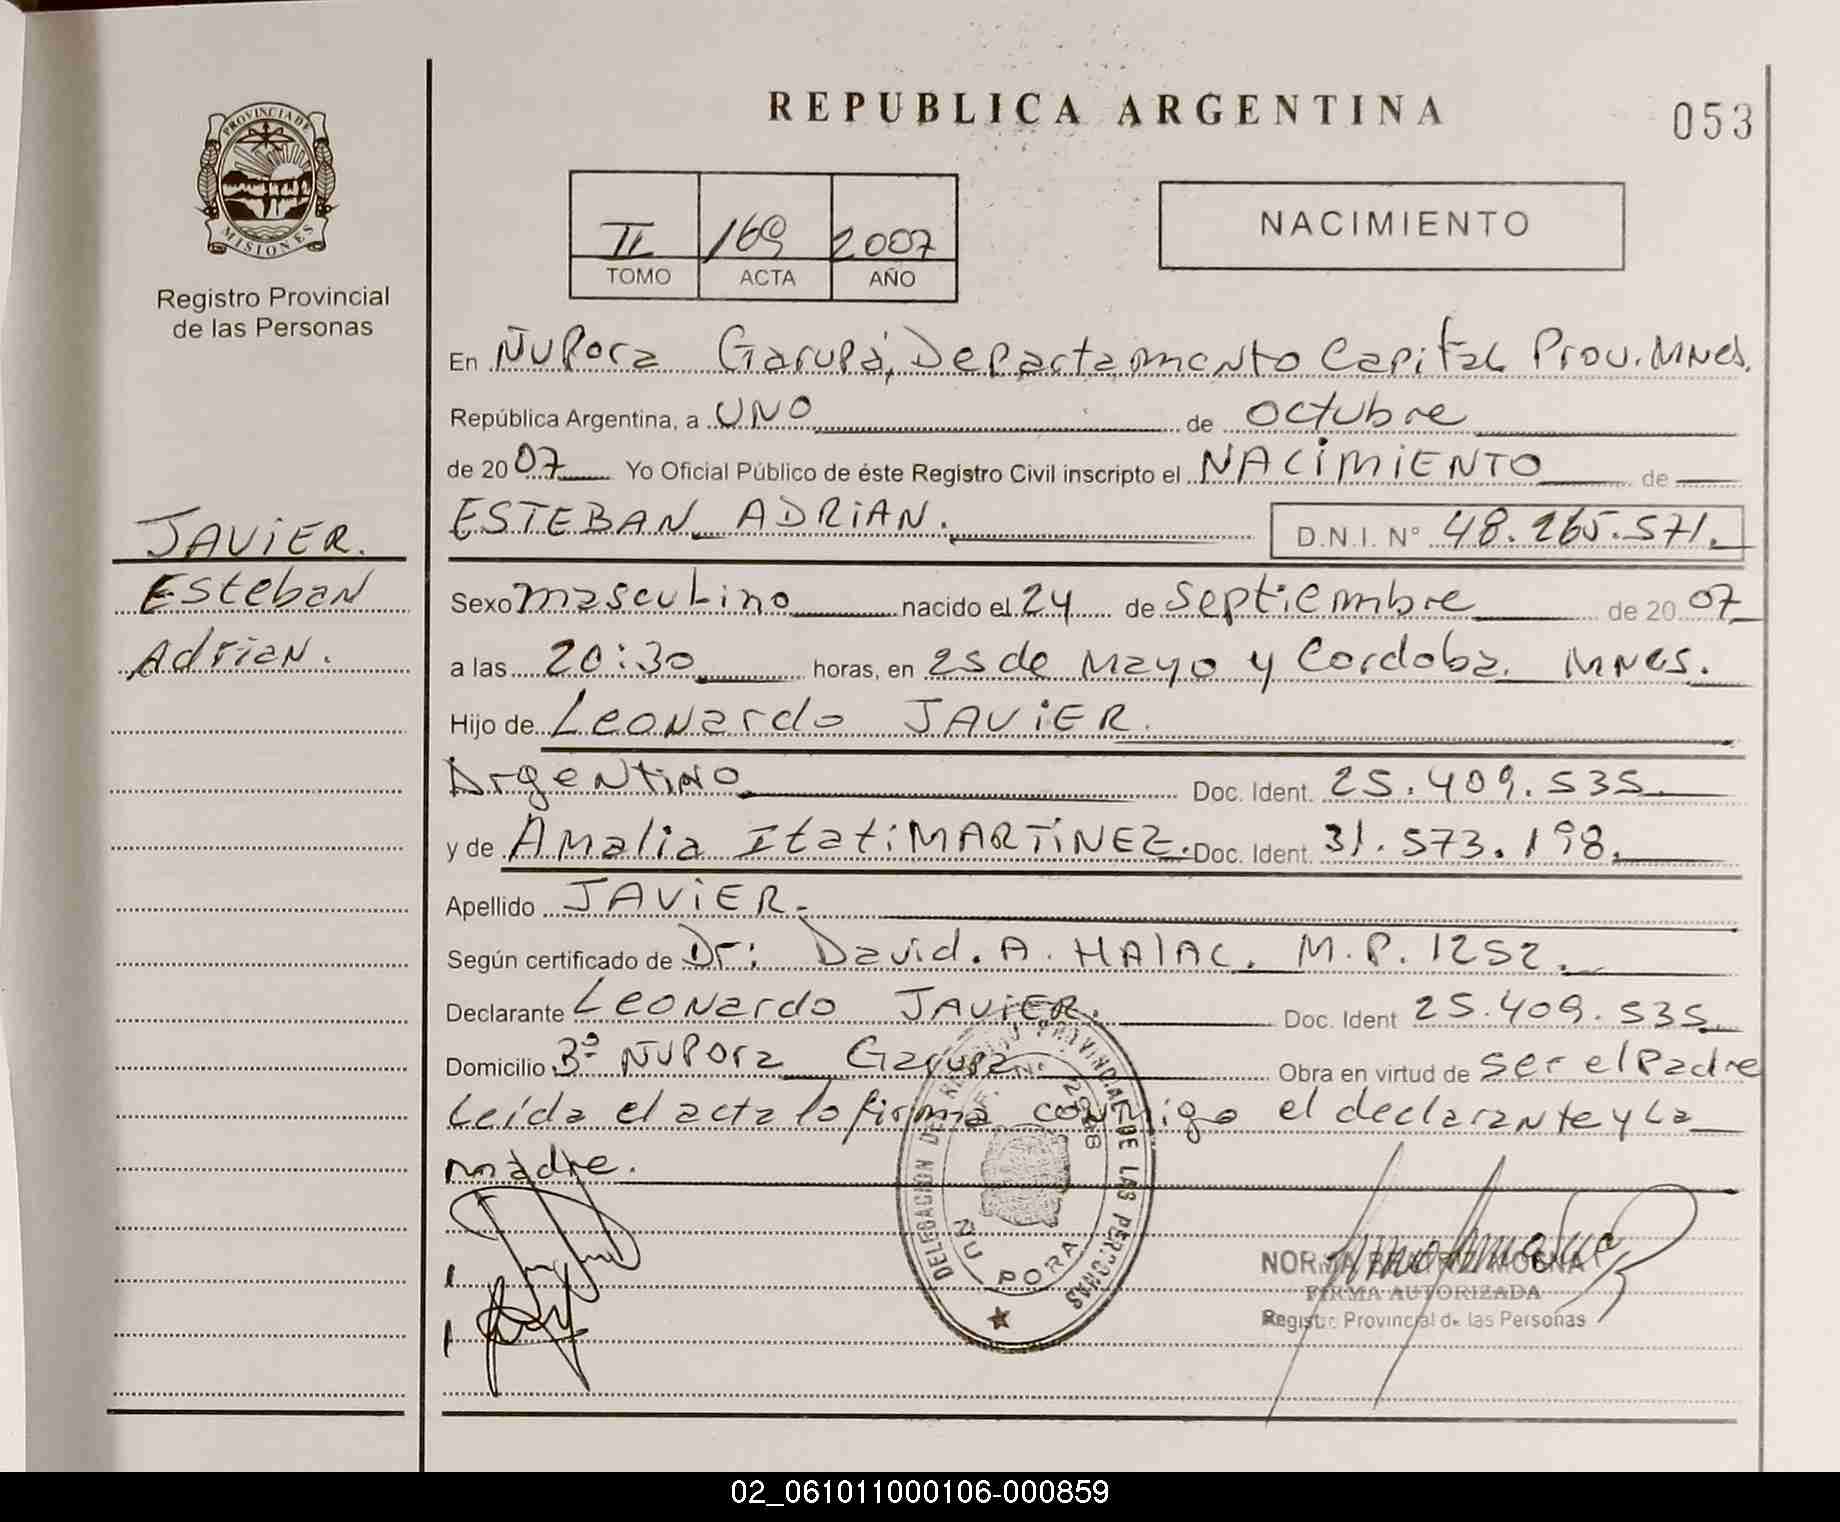 REPUBLICA ARGENTINA
053
PROVINCIA DE
MISIONES
Registro Provincial
de las Personas
II 169 2007
TOMO ACTA AÑO
NACIMIENTO
En ÑuPora Garupá, Departamento Capital Prov. MNes.
República Argentina, a UNO de octubre
de 2007 Yo Oficial Público de éste Registro Civil inscripto el NACIMIENTO de
ESTEBAN ADRIAN. D.N.I. N° 48.265.571.
JAVIER.
Esteban
Adrian.
Sexo masculino nacido el 24 de septiembre de 2007
a las 20:30 horas, en 25 de Mayo y Cordoba. MNes.
Hijo de Leonardo JAVIER.
Argentino Doc. Ident. 25.409.535.
y de Amalia Itati MARTINEZ. Doc. Ident. 31.573.198.
Apellido JAVIER.
Según certificado de Dr: David. A. HALAC. M.P. 1252.
Declarante Leonardo JAVIER. Doc. Ident 25.409.535.
Domicilio Bº ÑuPora Garupa. Obra en virtud de ser el Padre
Leída el acta lo firma conmigo el declarante y La
madre.
DELEGACION DEL REGISTRO PROVINCIAL DE LAS PERSONAS
ÑU PORA
NORMA BEATRIZ MOSNA
FIRMA AUTORIZADA
Registro Provincial de las Personas
02_061011000106-000859